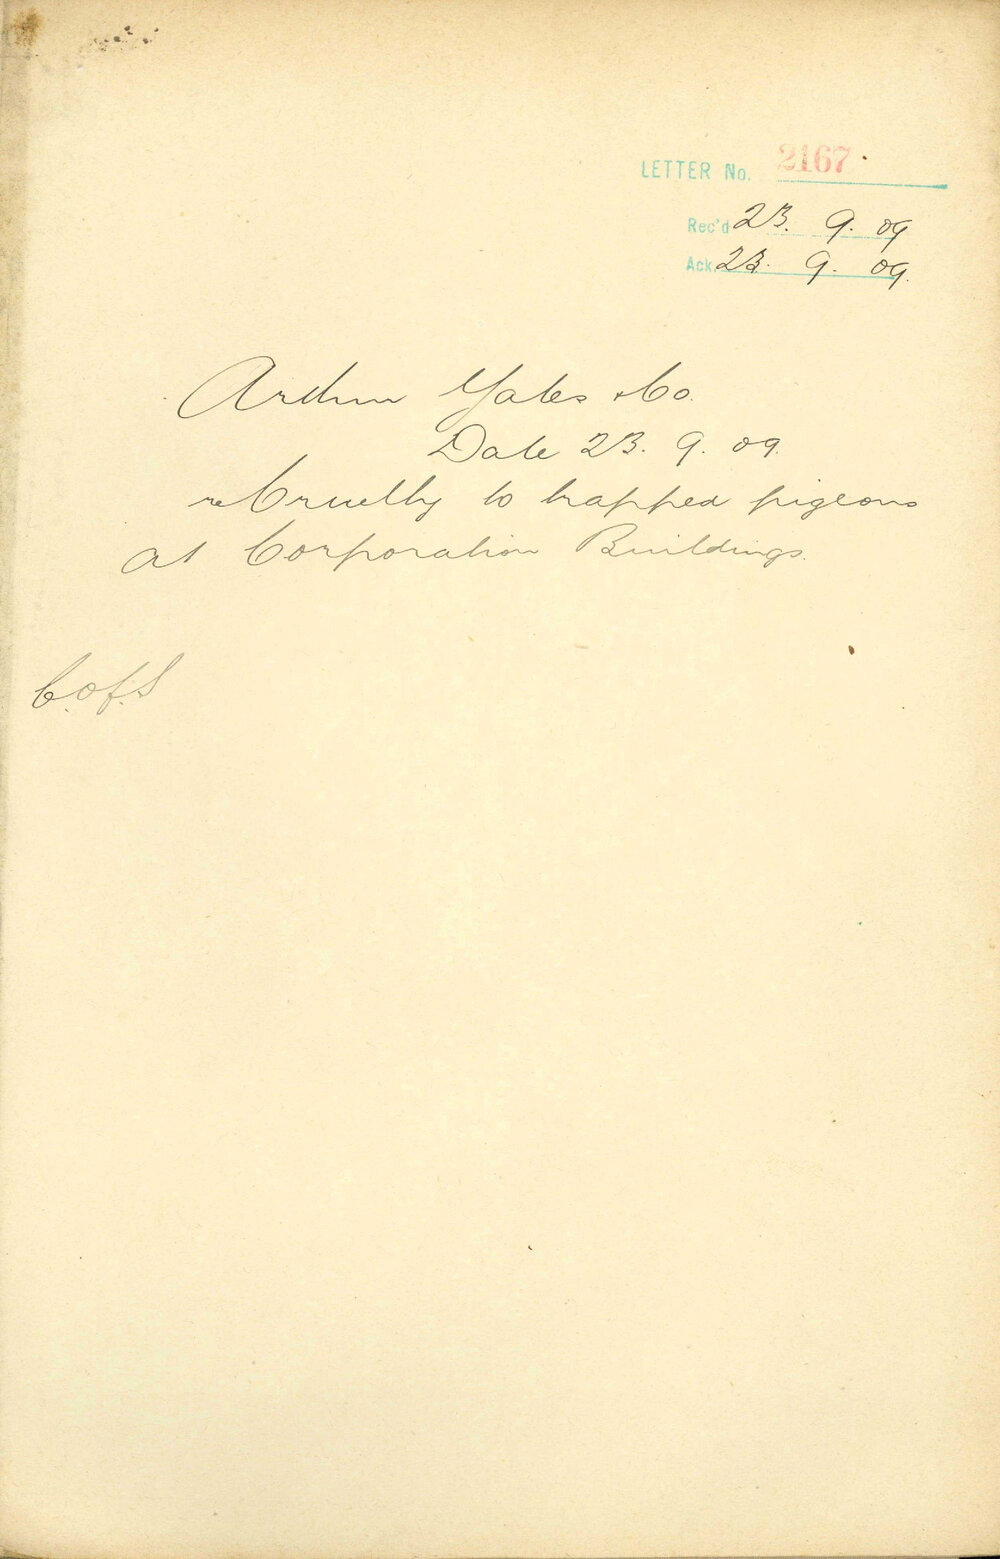 LETTER No. 2167
Rec'd 23. 9. 09
Ack. 23. 9. 09.
Arthur Yates & Co.
Date 23. 9. 09.
re Cruelty to trapped pigeons
at Corporation Buildings.
C. of. S